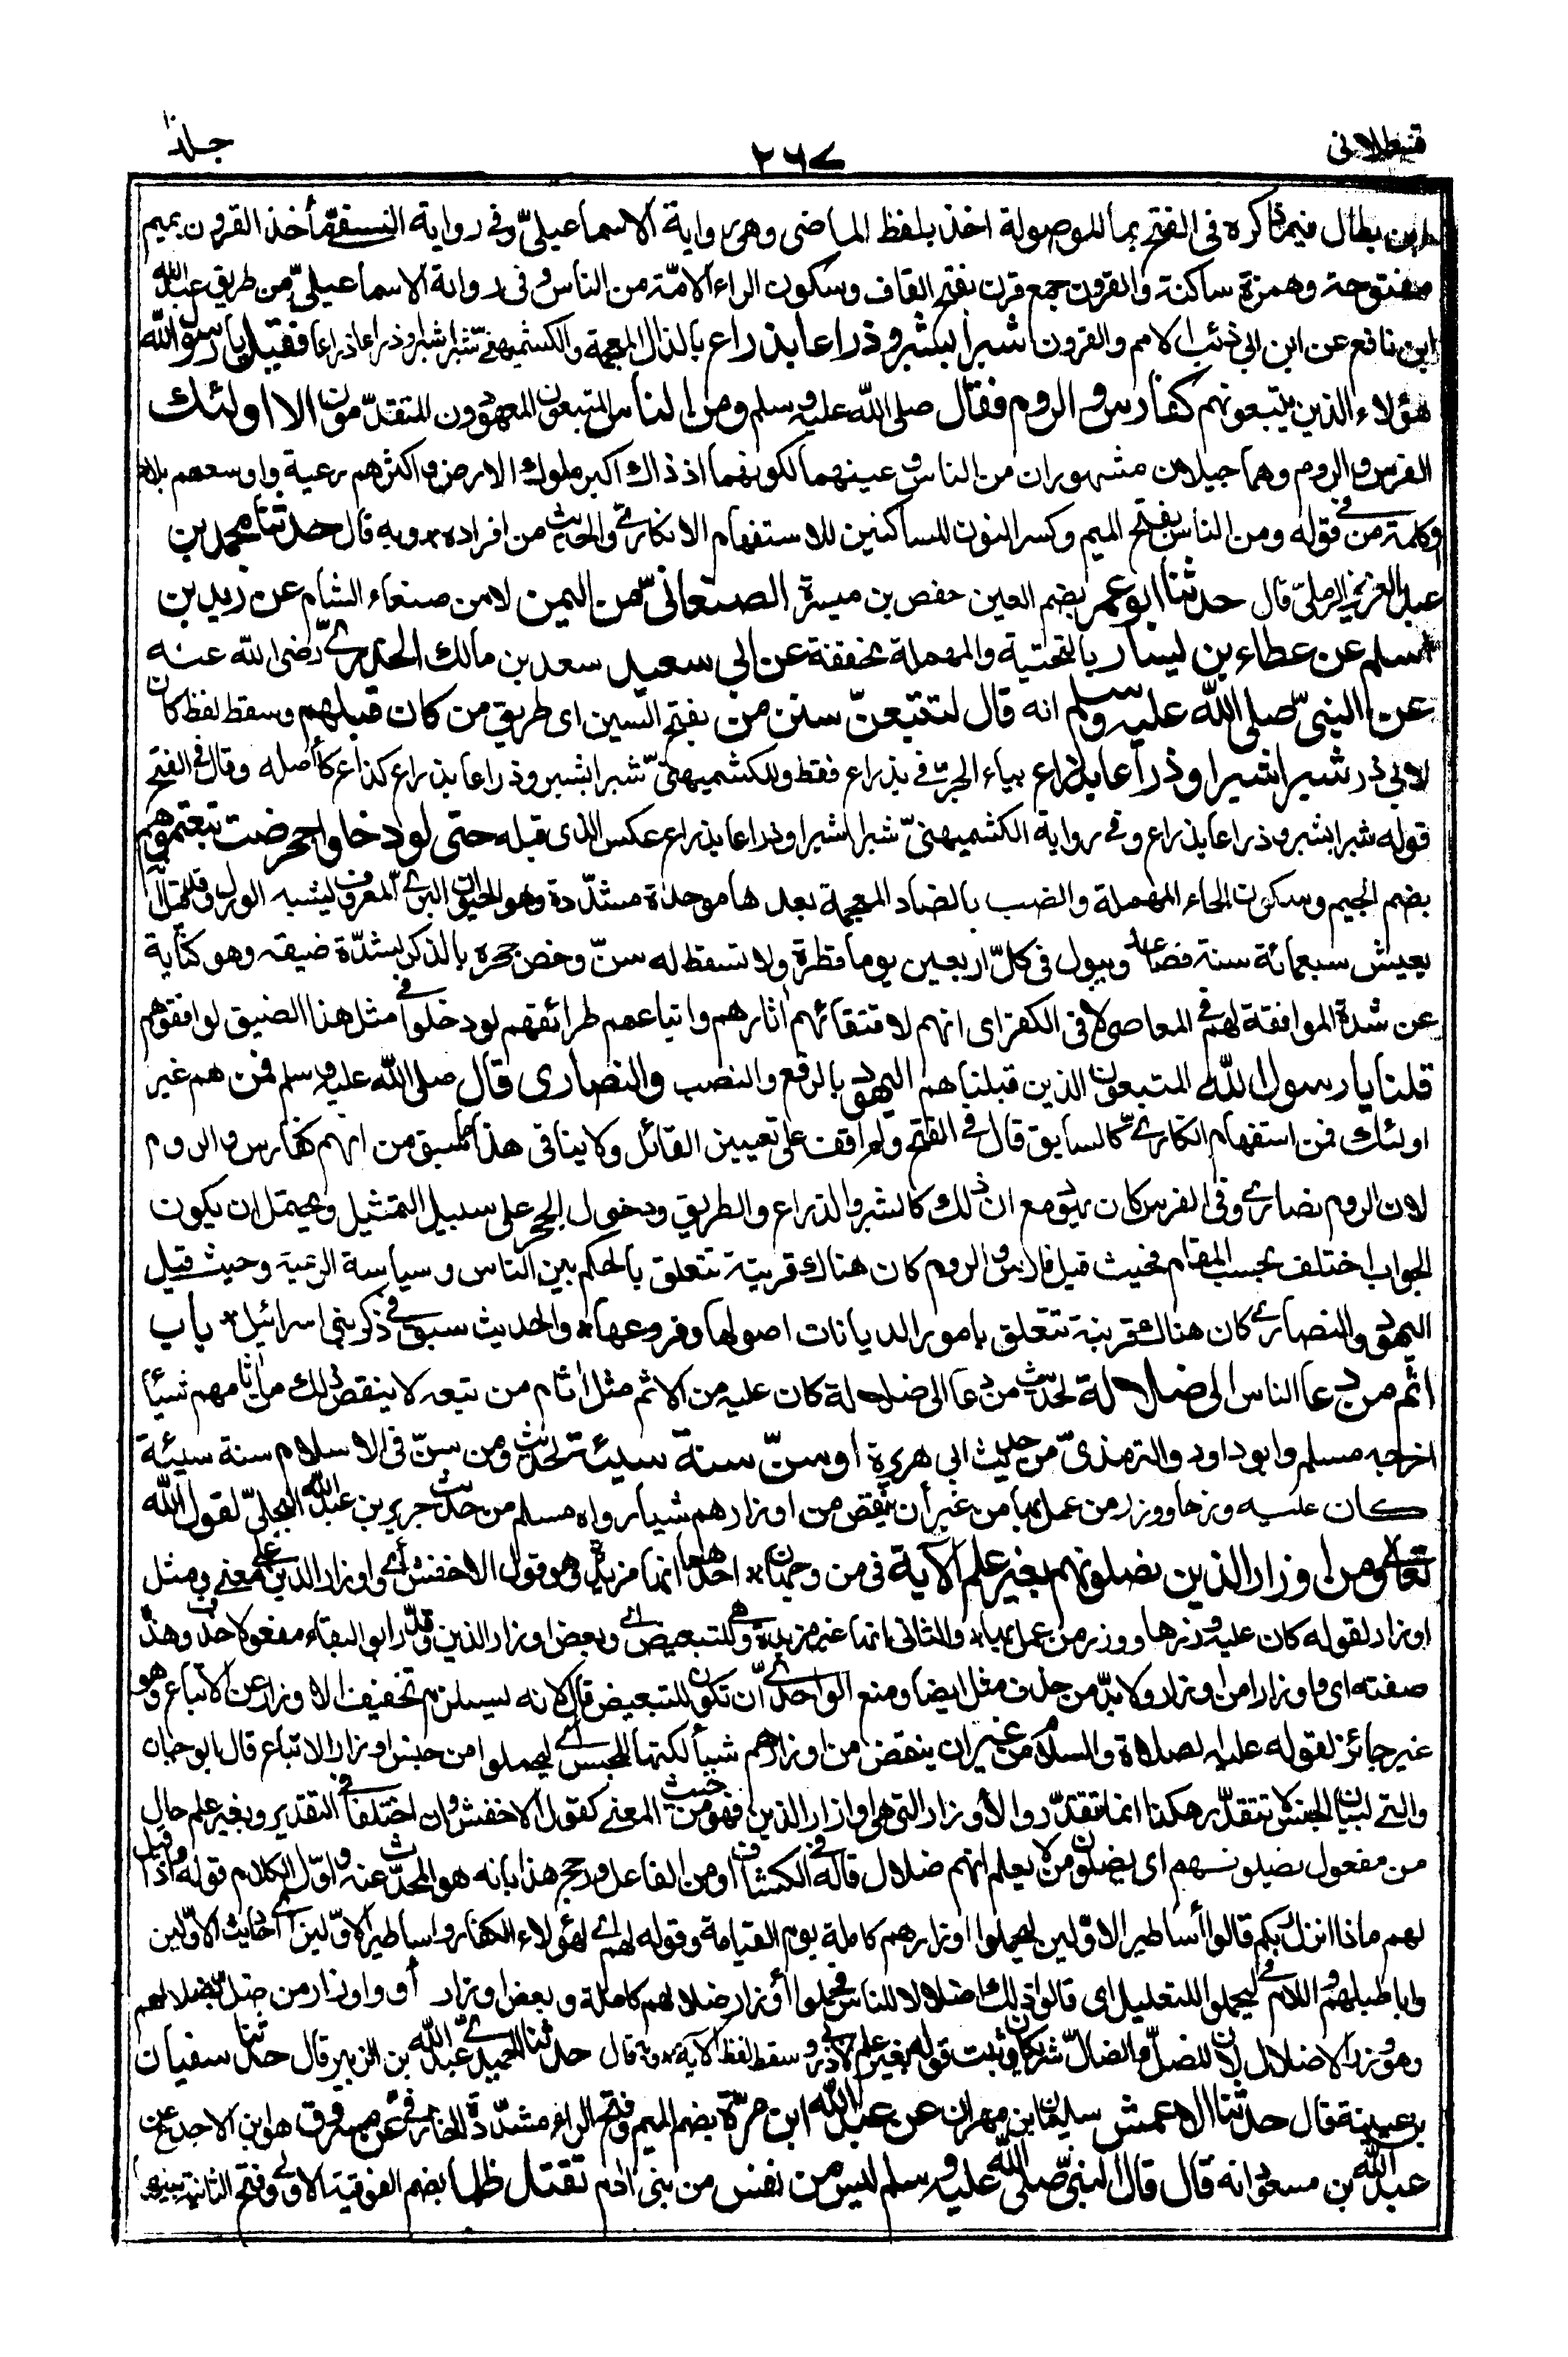 قسطلاني
٢٦٧
جلد ١٠
ابن بطال فيما ذكره في الفتح بما الموصولة اخذ بلفظ الماضي وهي رواية الاسماعيليّ وفي رواية النسفيّ مأخذ القرون بميم
مفتوحة وهمزة ساكنة والقرون جمع قرن بفتح القاف وسكون الراء الامّة من الناس وفي رواية الاسماعيليّ من طريق عبد الله
ابن نافع عن ابن ابي ذئب الامم والقرون شبرا بشبر وذراعا بذراع بالذال المعجمة والكشميهنيّ شبرا شبرا وذراعا ذراعا فقيل يا رسول الله
هؤلاء الذين يتبعونهم كفارس والروم فقال صلى الله عليه وسلم ومن الناس المتبعون المعهودون المتقدّمون الا اولئك
الفرس والروم وهما جيلان مشهوران من الناس وعينهما لكونهما اذ ذاك اكبر ملوك الارض واكثرهم رعية واوسعهم بلادا
وكلمة من في قوله ومن الناس بفتح الميم وكسر النون للساكنين للاستفهام الانكاريّ والحديث من افراده * وبه قال حدثنا محمد بن
عبد العزيز الرمليّ قال حدثنا ابو عمر بضم العين حفص بن ميسرة الصنعانيّ من اليمن لا من صنعاء الشام عن زيد بن
اسلم عن عطاء بن يسار بالتحتية والمهملة مخففة عن ابي سعيد سعد بن مالك الخدريّ رضى الله عنه
عن النبيّ صلى الله عليه وسلم انه قال لتتبعنّ سنن من بفتح السين اى طريق من كان قبلهم وسقط لفظ كان
لابي ذر شبرا شبرا وذراعا بذراع بباء الجرّ في بذراع فقط وللكشميهنيّ شبرا بشبر وذراعا بذراع كذا ع كأصله وقال في الفتح
قوله شبرا بشبر وذراعا بذراع وفي رواية الكشميهنيّ شبرا شبرا وذراعا بذراع عكس الذى قبله حتى لو دخلوا جحر ضب تبعتموهم
بضم الجيم وسكون الحاء المهملة والضب بالضاد المعجمة بعدها موحدة مشدّدة وهو الحيوان البريّ المعروف يشبه الورل وقد قيل انه
يعيش سبعمائة سنة فصاعدا ويبول في كلّ اربعين يوما قطرة ولا تسقط له سنّ وخص جحره بالذكر لشدّة ضيقه وهو كناية
عن شدة الموافقة لهم في المعاصى لا في الكفر اى انهم لاقتفائهم آثارهم واتباعهم طرائقهم لو دخلوا في مثل هذا الضيق لوافقوهم
قلنا يا رسول الله المتبعون الذين قبلنا هم اليهود بالرفع والنصب والنصارى قال صلى الله عليه وسلم فمن هم غير
اولئك فمن استفهام انكاريّ كالسابق قال في الفتح ولم اقف على تعيين القائل ولا ينافى هذا ما سبق من انهم كفارس والروم
لان الروم نصارى وفي الفرس كان يهود مع ان ذلك كالشبر والذراع والطريق ودخول الجحر على سبيل التمثيل ويحتمل ان يكون
الجواب اختلف بحسب المقام فحيث قيل فارس والروم كان هناك قرينة تتعلق بالحكم بين الناس وسياسة الرعية وحيث قيل
اليهود والنصارى كان هناك قرينة تتعلق بامور الديانات اصولها وفروعها * والحديث سبق في ذكر بني اسرائيل * باب
اثم من دعا الناس الى ضلالة لحديث من دعا الى ضلالة كان عليه من الاثم مثل آثام من تبعه لا ينقص ذلك من آثامهم شيأ
اخرجه مسلم وابو داود والترمذىّ من حديث ابي هريرة او سنّ سنة سيئة لحديث ومن سنّ في الاسلام سنة سيئة
كان عليه وزرها ووزر من عمل بها من غير أن ينقص من اوزارهم شيأ رواه مسلم من حديث جرير بن عبد الله البجليّ لقول الله
تعالى ومن اوزار الذين يضلونهم بغير علم الآية في من وجهان * احدهما انها مزيدة وهو قول الاخفش أى واوزار الذين على معنى ومثل
اوزار لقوله كان عليه وزرها ووزر من عمل بها * والثانى انها غير مزيدة وهى للتبعيض أى وبعض اوزار الذين وقدّر ابو البقاء مفعولا حذف وهذه
صفته اى واوزارا من اوزار ولا بدّ من حذف مثل ايضا ومنع الواحديّ أن تكون للتبعيض قال لانه يستلزم تخفيف الاوزار عن الاتباع وهو
غير جائز لقوله عليه الصلاة والسلام من غير ان ينقص من اوزارهم شيأ لكنها للجنس أى ليحملوا من جنس اوزار الاتباع قال ابو حيان
والتى لبيان الجنس لا تتقدّر هكذا انما تتقدّر والأوزار التى هى اوزار الذين فهو من حيث المعنى كقول الاخفش وان اختلفا في التقدير وبغير علم حال
من مفعول يضلونهم اى يضلون من لا يعلم انهم ضلال قاله في الكشاف او من الفاعل ورجح هذا بانه هو المحدّث عنه واوّل الكلام قوله واذا قيل
لهم ماذا انزل ربكم قالوا أساطير الاوّلين ليحملوا اوزارهم كاملة يوم القيامة وقوله لهم أى لهؤلاء الكفار واساطير الاوّلين أى احاديث الاوّلين
واباطيلهم واللام في ليحملوا للتعليل اى قالوا ذلك اضلالا للناس فحملوا أوزار ضلالهم كاملة وبعض اوزار أو واوزار من ضلّ بضلالهم
وهو وزر الاضلال لان المضلّ والضالّ شريكان وثبت قوله بغير علم لابي ذر وسقط لفظ الآية * وبه قال حدثنا الحميديّ عبد الله بن الزبير قال حدثنا سفيان
بن عيينة قال حدثنا الاعمش سليمان بن مهران عن عبد الله ابن مرّة بضم الميم وفتح الراء مشدّدة الخارفيّ عن مسروق هو ابن الاجدع عن
عبد الله بن مسعود انه قال قال النبيّ صلى الله عليه وسلم ليس من نفس من بنى ادم تقتل ظلما بضم الفوقية الاولى وفتح الثانية بينهما